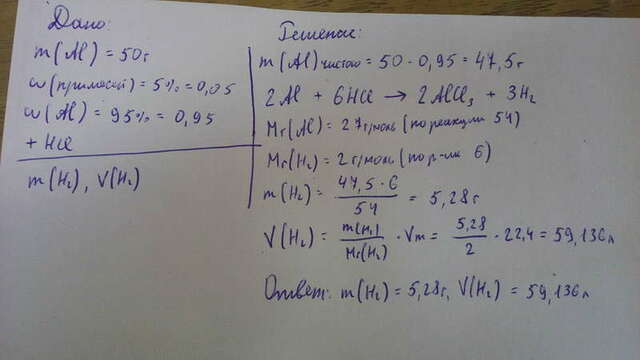 Дано:
m(Al) = 50г
ω(примесей) = 5% = 0,05
ω(Al) = 95% = 0,95
+ HCl
m(H₂), V(H₂)
Решение:
m(Al) чистого = 50 · 0,95 = 47,5г
2Al + 6HCl → 2AlCl₃ + 3H₂
Mr(Al) = 27г/моль (по реакции 54)
Mr(H₂) = 2г/моль (по р-ии 6)
m(H₂) = 47,5 · 6 / 54 = 5,28г
V(H₂) = m(H₂) / Mr(H₂) · Vm = 5,28 / 2 · 22,4 = 59,136л
Ответ: m(H₂) = 5,28г, V(H₂) = 59,136л